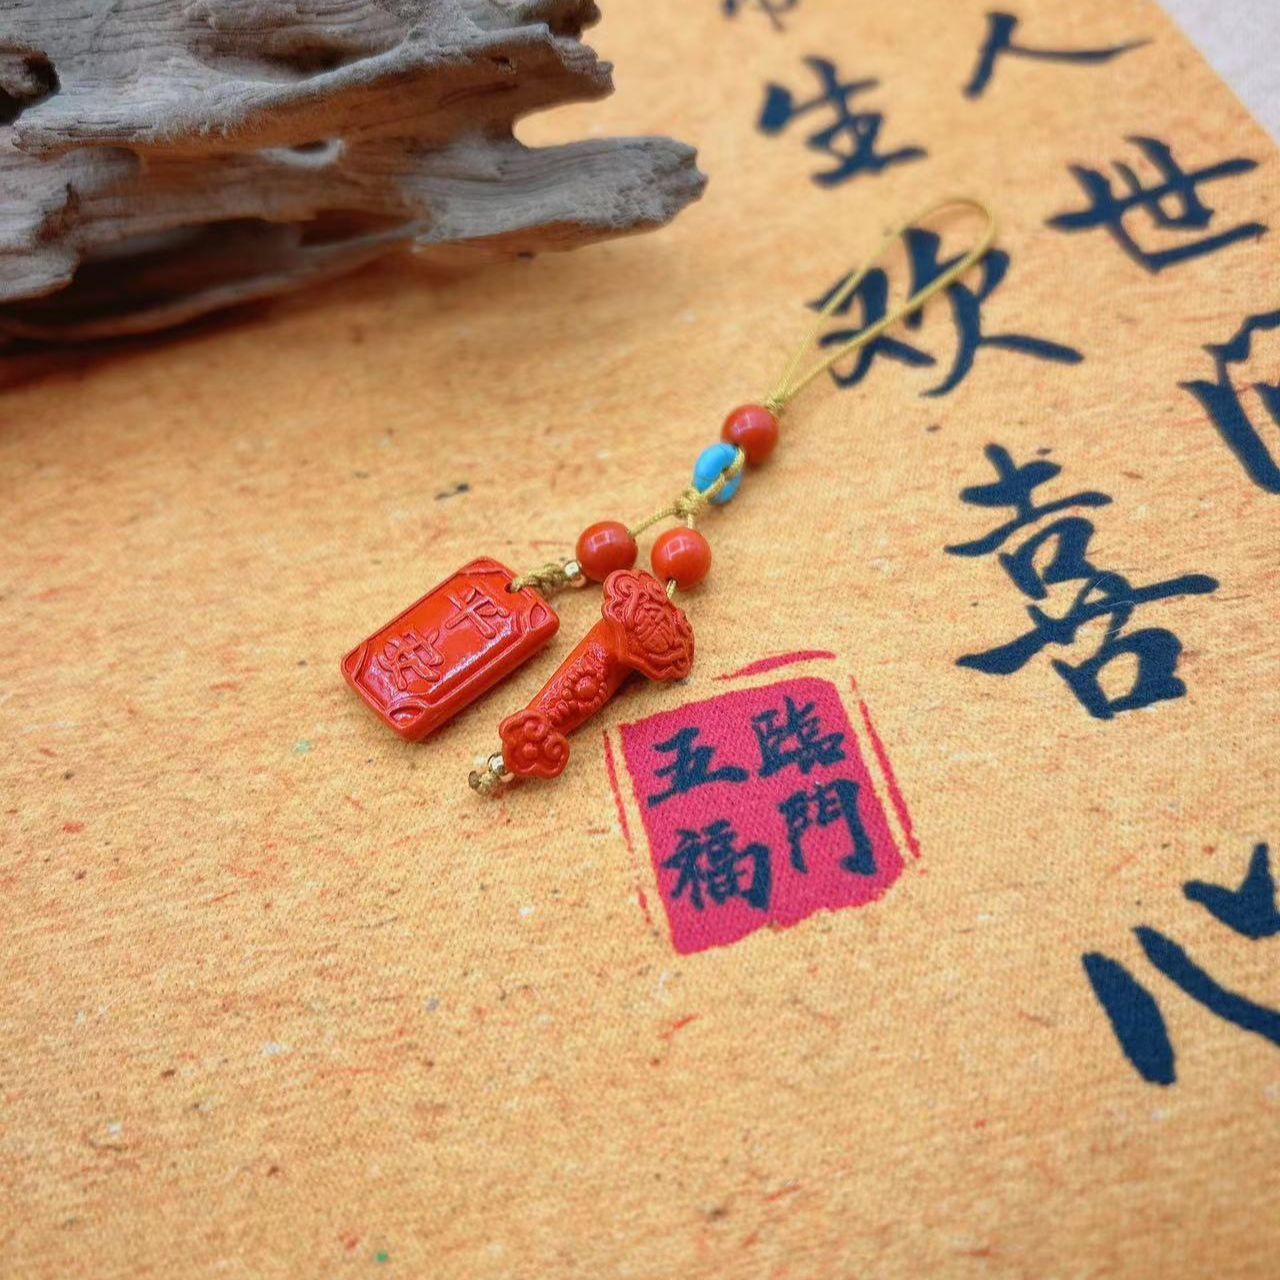 人世
生欢喜
平安
五福
臨門